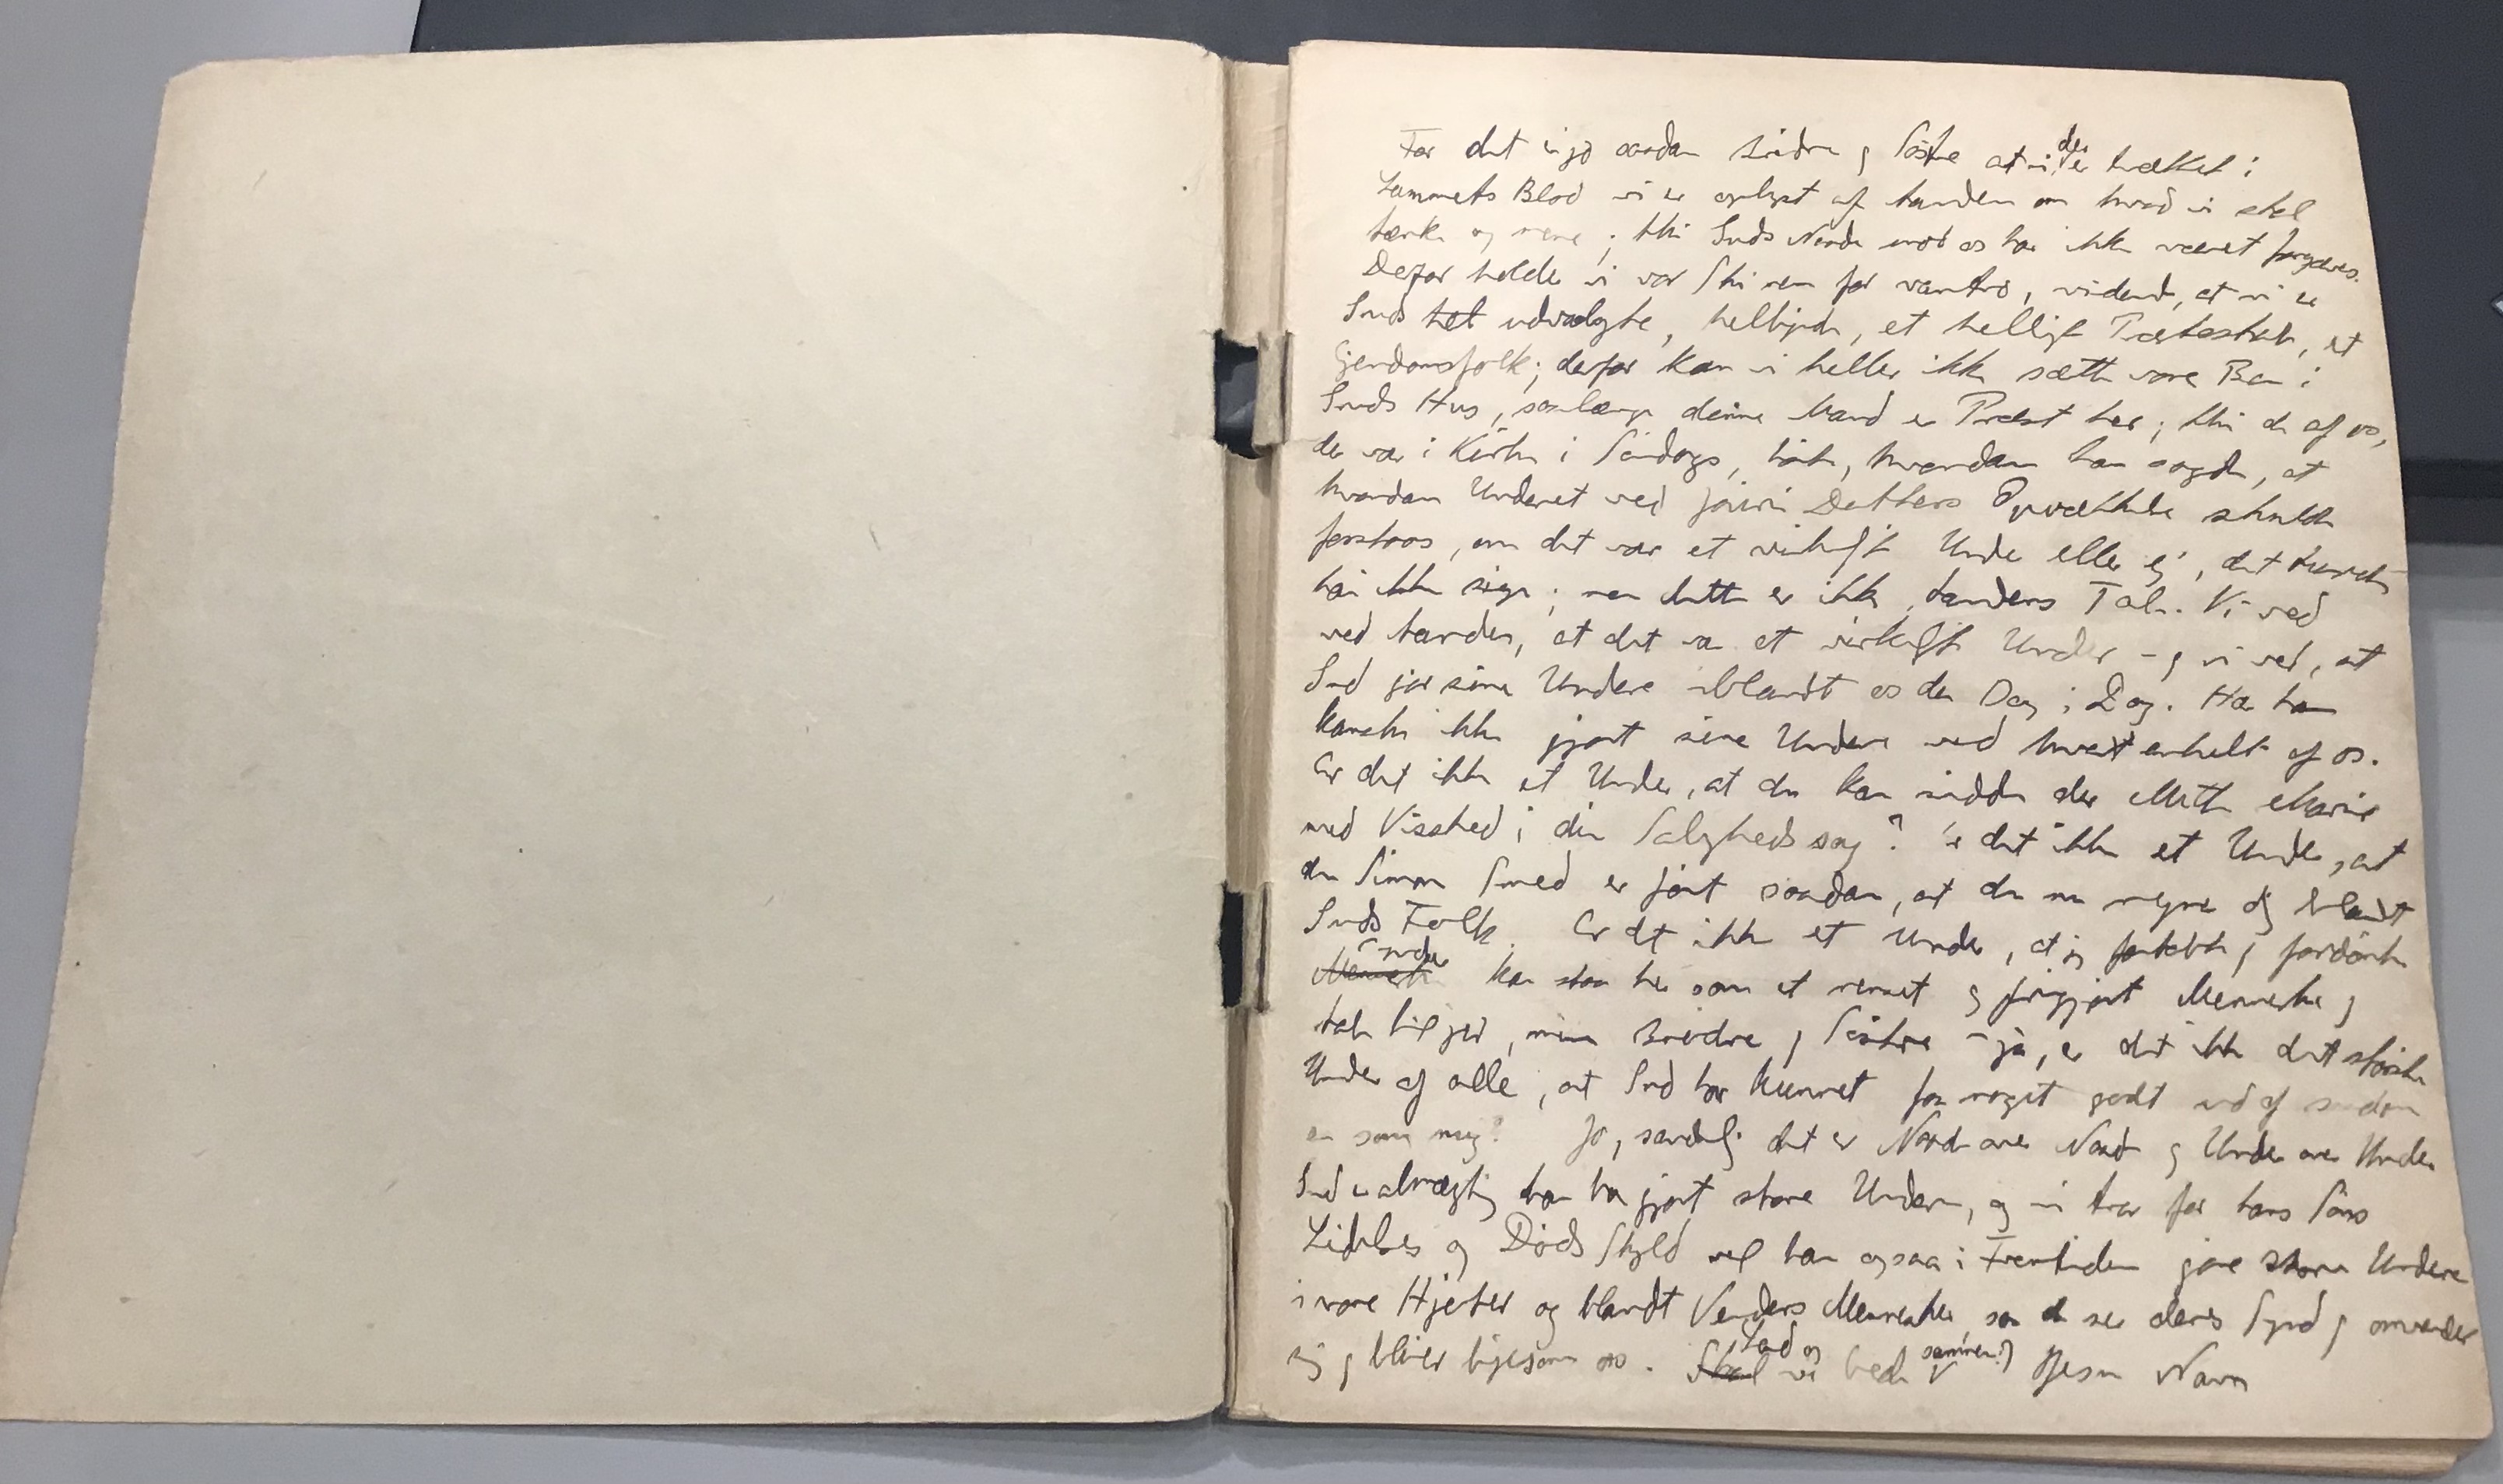 For det er jo saadan Brödre og Söstre at vi, der er tvættet i
Lammets Blod vi er oplyst af Aanden om hvad vi skal
tænke og mene; thi Guds Naade mod os har ikke været forgæves.
Derfor holder vi vor Sti ren for vantro, vidende, at vi er
Guds udvalgte, helligede, et helligt Præsteskab, et
Ejendomsfolk; derfor kan vi heller ikke sætte vore Ben i
Guds Hus, saalænge denne Mand er Præst her; thi de af os,
der var i Kirke i Söndags, hörte, hvordan han sagde, at
hvordan Underet ved Jairi Datters Opvækkelse skulde
forstaas, om det var et virkeligt Under eller ej, det turde
han ikke sige; men dette er ikke Aandens Tale. Vi ved
ved Aanden, at det var et virkeligt Under - og vi ved, at
Gud gör sine Undere iblandt os den Dag i Dag. Har han
kanske ikke gjort sine Undere ved hvert enkelt af os.
Er det ikke et Under, at du kan sidde der Mette Marie
med Vished i din Saligheds sag? Er det ikke et Under, at
du Simon Smed er fört saadan, at du nu regner dig blandt
Guds Folk. Er det ikke et Under, at jeg fortabte og fordömte
Synder kan staa her som et renset og frigjort Menneske og
tale til jer, mine Brödre og Söstre - ja, er det ikke det störste
Under af alle, at Gud har kunnet faa noget godt ud af saadan
en som mig? Jo, sandelig det er Naade over Naade og Under over Under
Gud er almægtig han har gjort store Undere, og vi tror for hans Söns
Lidelses og Döds Skyld vil han ogsaa i Fremtiden gøre store Undere
i vore Hjerter og blandt Verdens Mennesker, saa de ser deres Synd og omvender
sig og bliver ligesom os. Lad os bede sammen i Jesu Navn